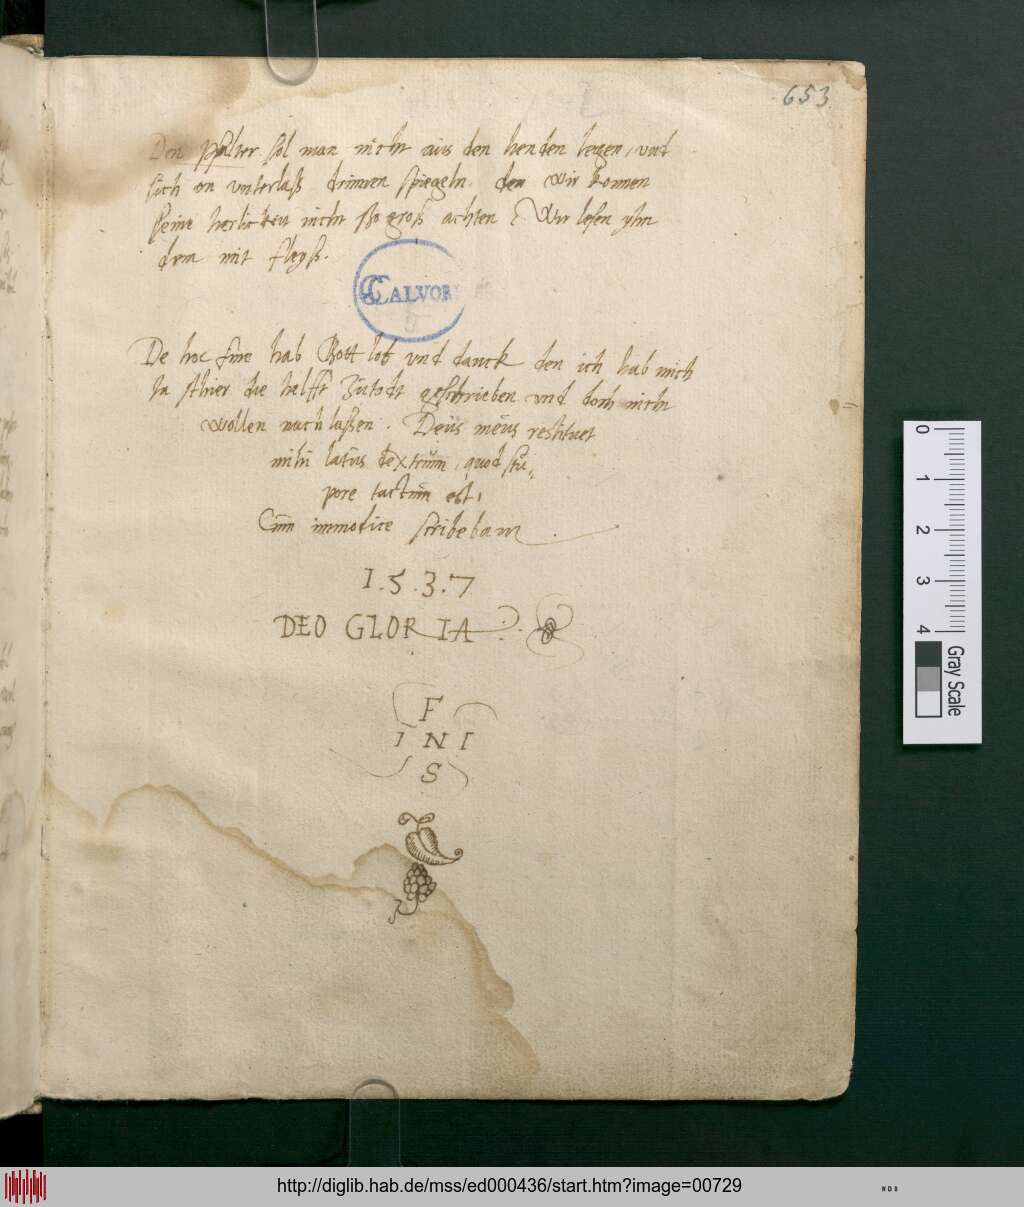 653
Den psalter sol man nicht aus den henden legen, vnd
sich on vnterlaß drinnen spiegeln. den wir konnen
seine herlickeit nicht sso groß achten, Wir lesen yhn
denn mit fleyß.
CALVOR
De hoc fine hab Gott lob vnd danck den ich hab mich
ja schier die helfft zutodt geschrieben vnd doch nicht
wollen nach lassen. Deus meus restituet
mihi latus dextrum, quod stu-
pore tactum est,
Cum immodice scribebam.
1.5.3.7
DEO GLORIA
F
I N I
S
0 1 2 3 4
Gray Scale
http://diglib.hab.de/mss/ed000436/start.htm?image=00729